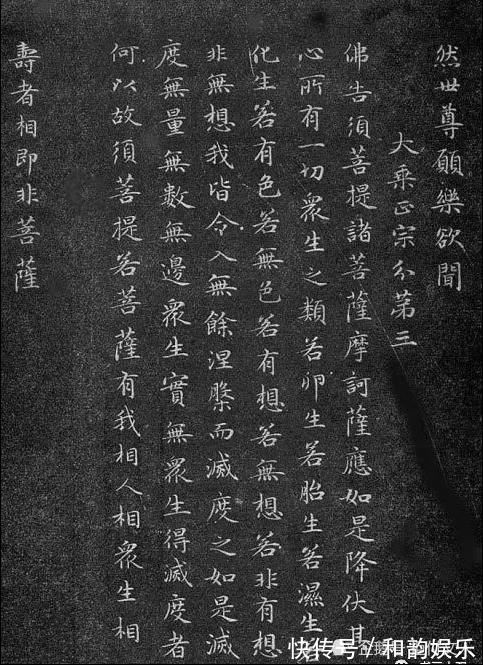 然世尊願樂欲聞
大乘正宗分第三
佛告須菩提諸菩薩摩訶薩應如是降伏其
心所有一切眾生之類若卵生若胎生若濕生若
化生若有色若無色若有想若無想若非有想
非無想我皆令入無餘涅槃而滅度之如是滅
度無量無數無邊眾生實無眾生得滅度者
何以故須菩提若菩薩有我相人相眾生相
壽者相即非菩薩
快传号/和韵娱乐